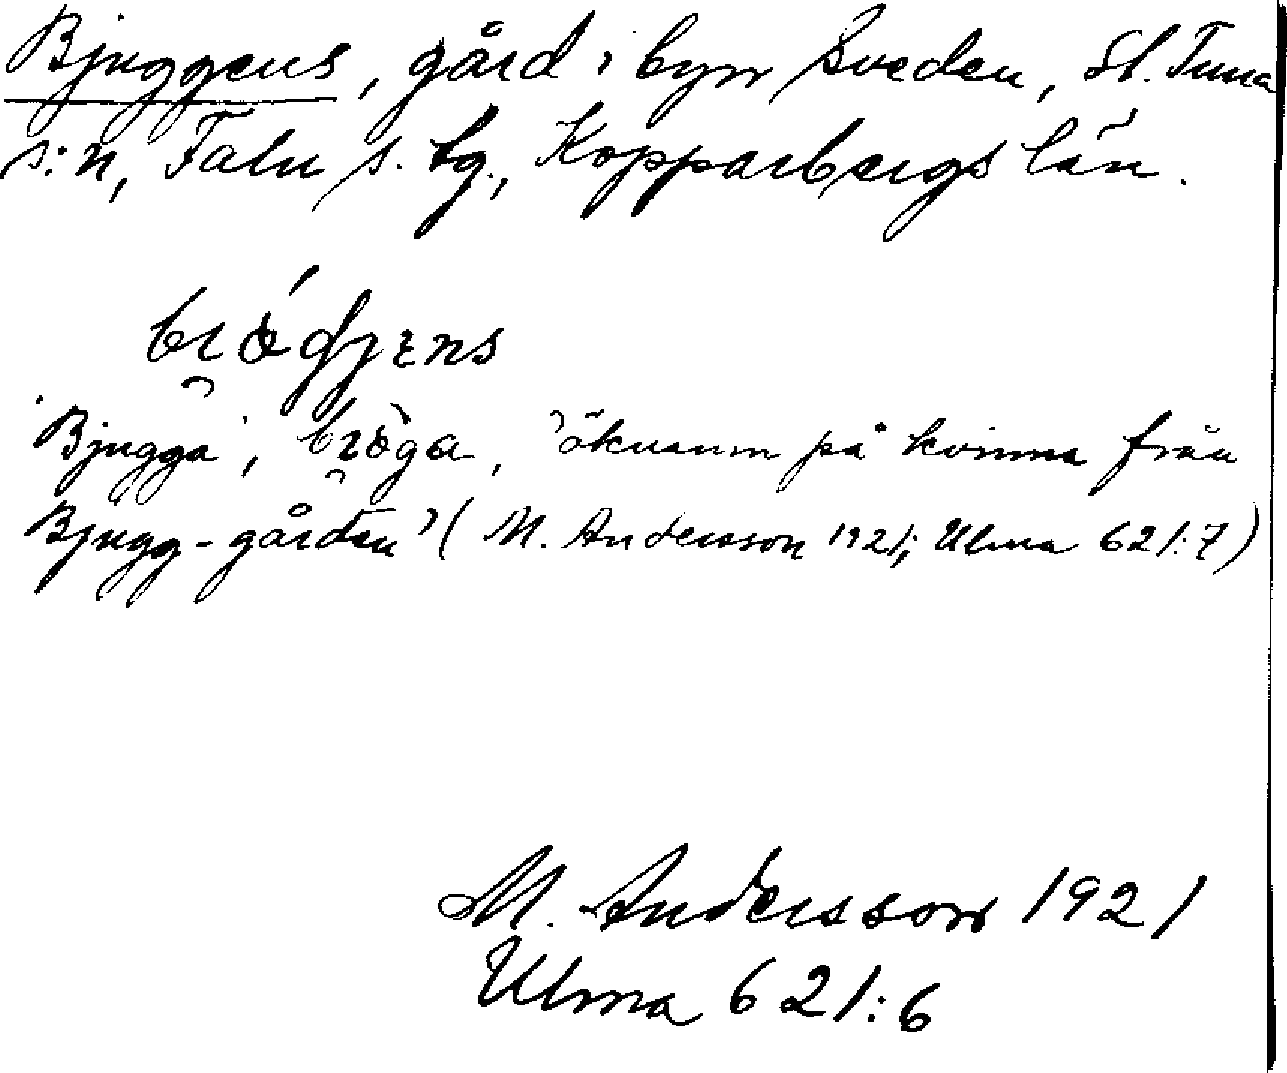 Bjuggens, gård i byn Sveden, St. Tuna
s:n, Falu s. tg., Kopparbergs län.
'Bjugga', 'öknamn på kvinna från
Bjugg-gården' (M. Andersson 1921; Ulma 621:7)
M. Andersson 1921
Ulma 621:6